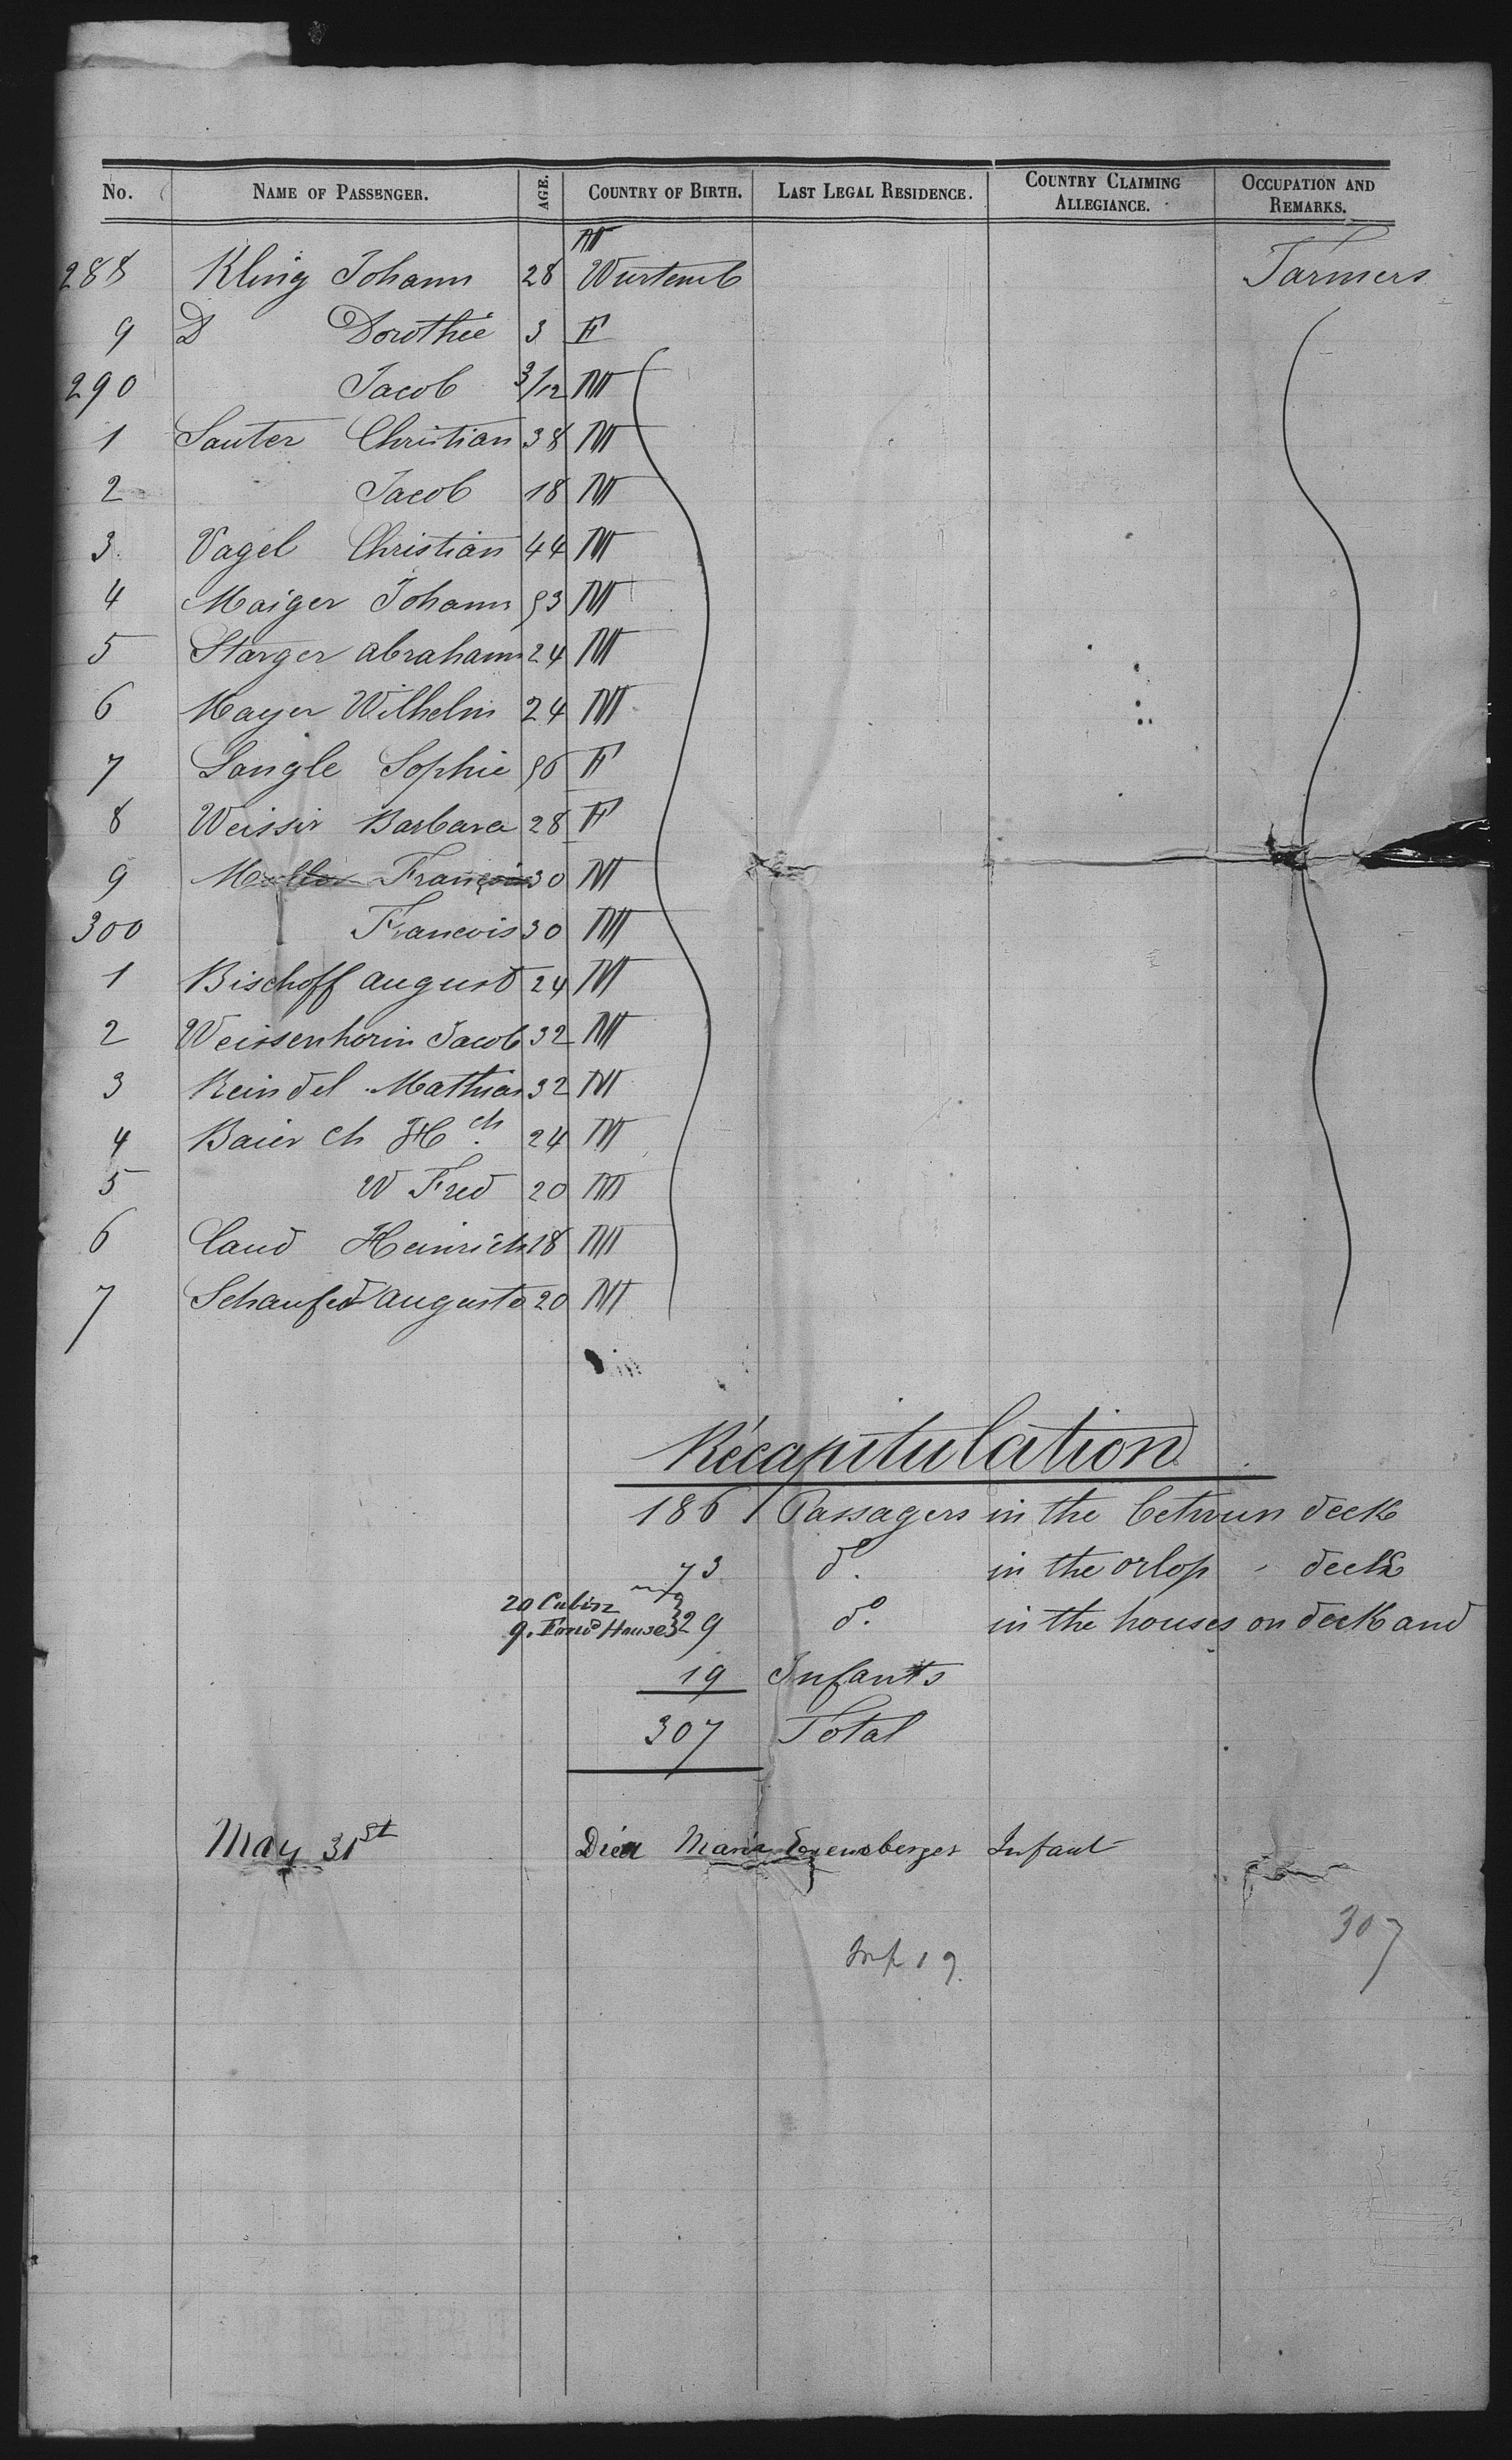 No. NAME OF PASSENGER. AGE. COUNTRY OF BIRTH. LAST LEGAL RESIDENCE. COUNTRY CLAIMING ALLEGIANCE. OCCUPATION AND REMARKS.
M
288 Kling Johann 28 Wurtemb Farmers
9 D Dorothée 3 F
290 Jacob 3/12 M
1 Sauter Christian 38 M
2 Jacob 18 M
3 Vagel Christian 44 M
4 Maiger Johann 53 M
5 Starger abraham 24 M
6 Mayer Wilhelm 24 M
7 Langle Sophie 56 F
8 Weissir Barbara 28 F
9 Muller François 30 M
300 Francois 30 M
1 Bischoff august 24 M
2 Weissenhorin Jacob 32 M
3 Reindel Mathias 32 M
4 Baier ch Hch 24 M
5 W Fred 20 M
6 Caud Heinrich 18 M
7 auguste 20 M
Récapitulation
186 Passagers in the betwun deck
73 do. in the orlop - deck
20 Cabin
9. Forwd House 29 do. in the houses on deck and
19 Infants
307 Total
May 31st Died Maria Infant
307
Inf 19.